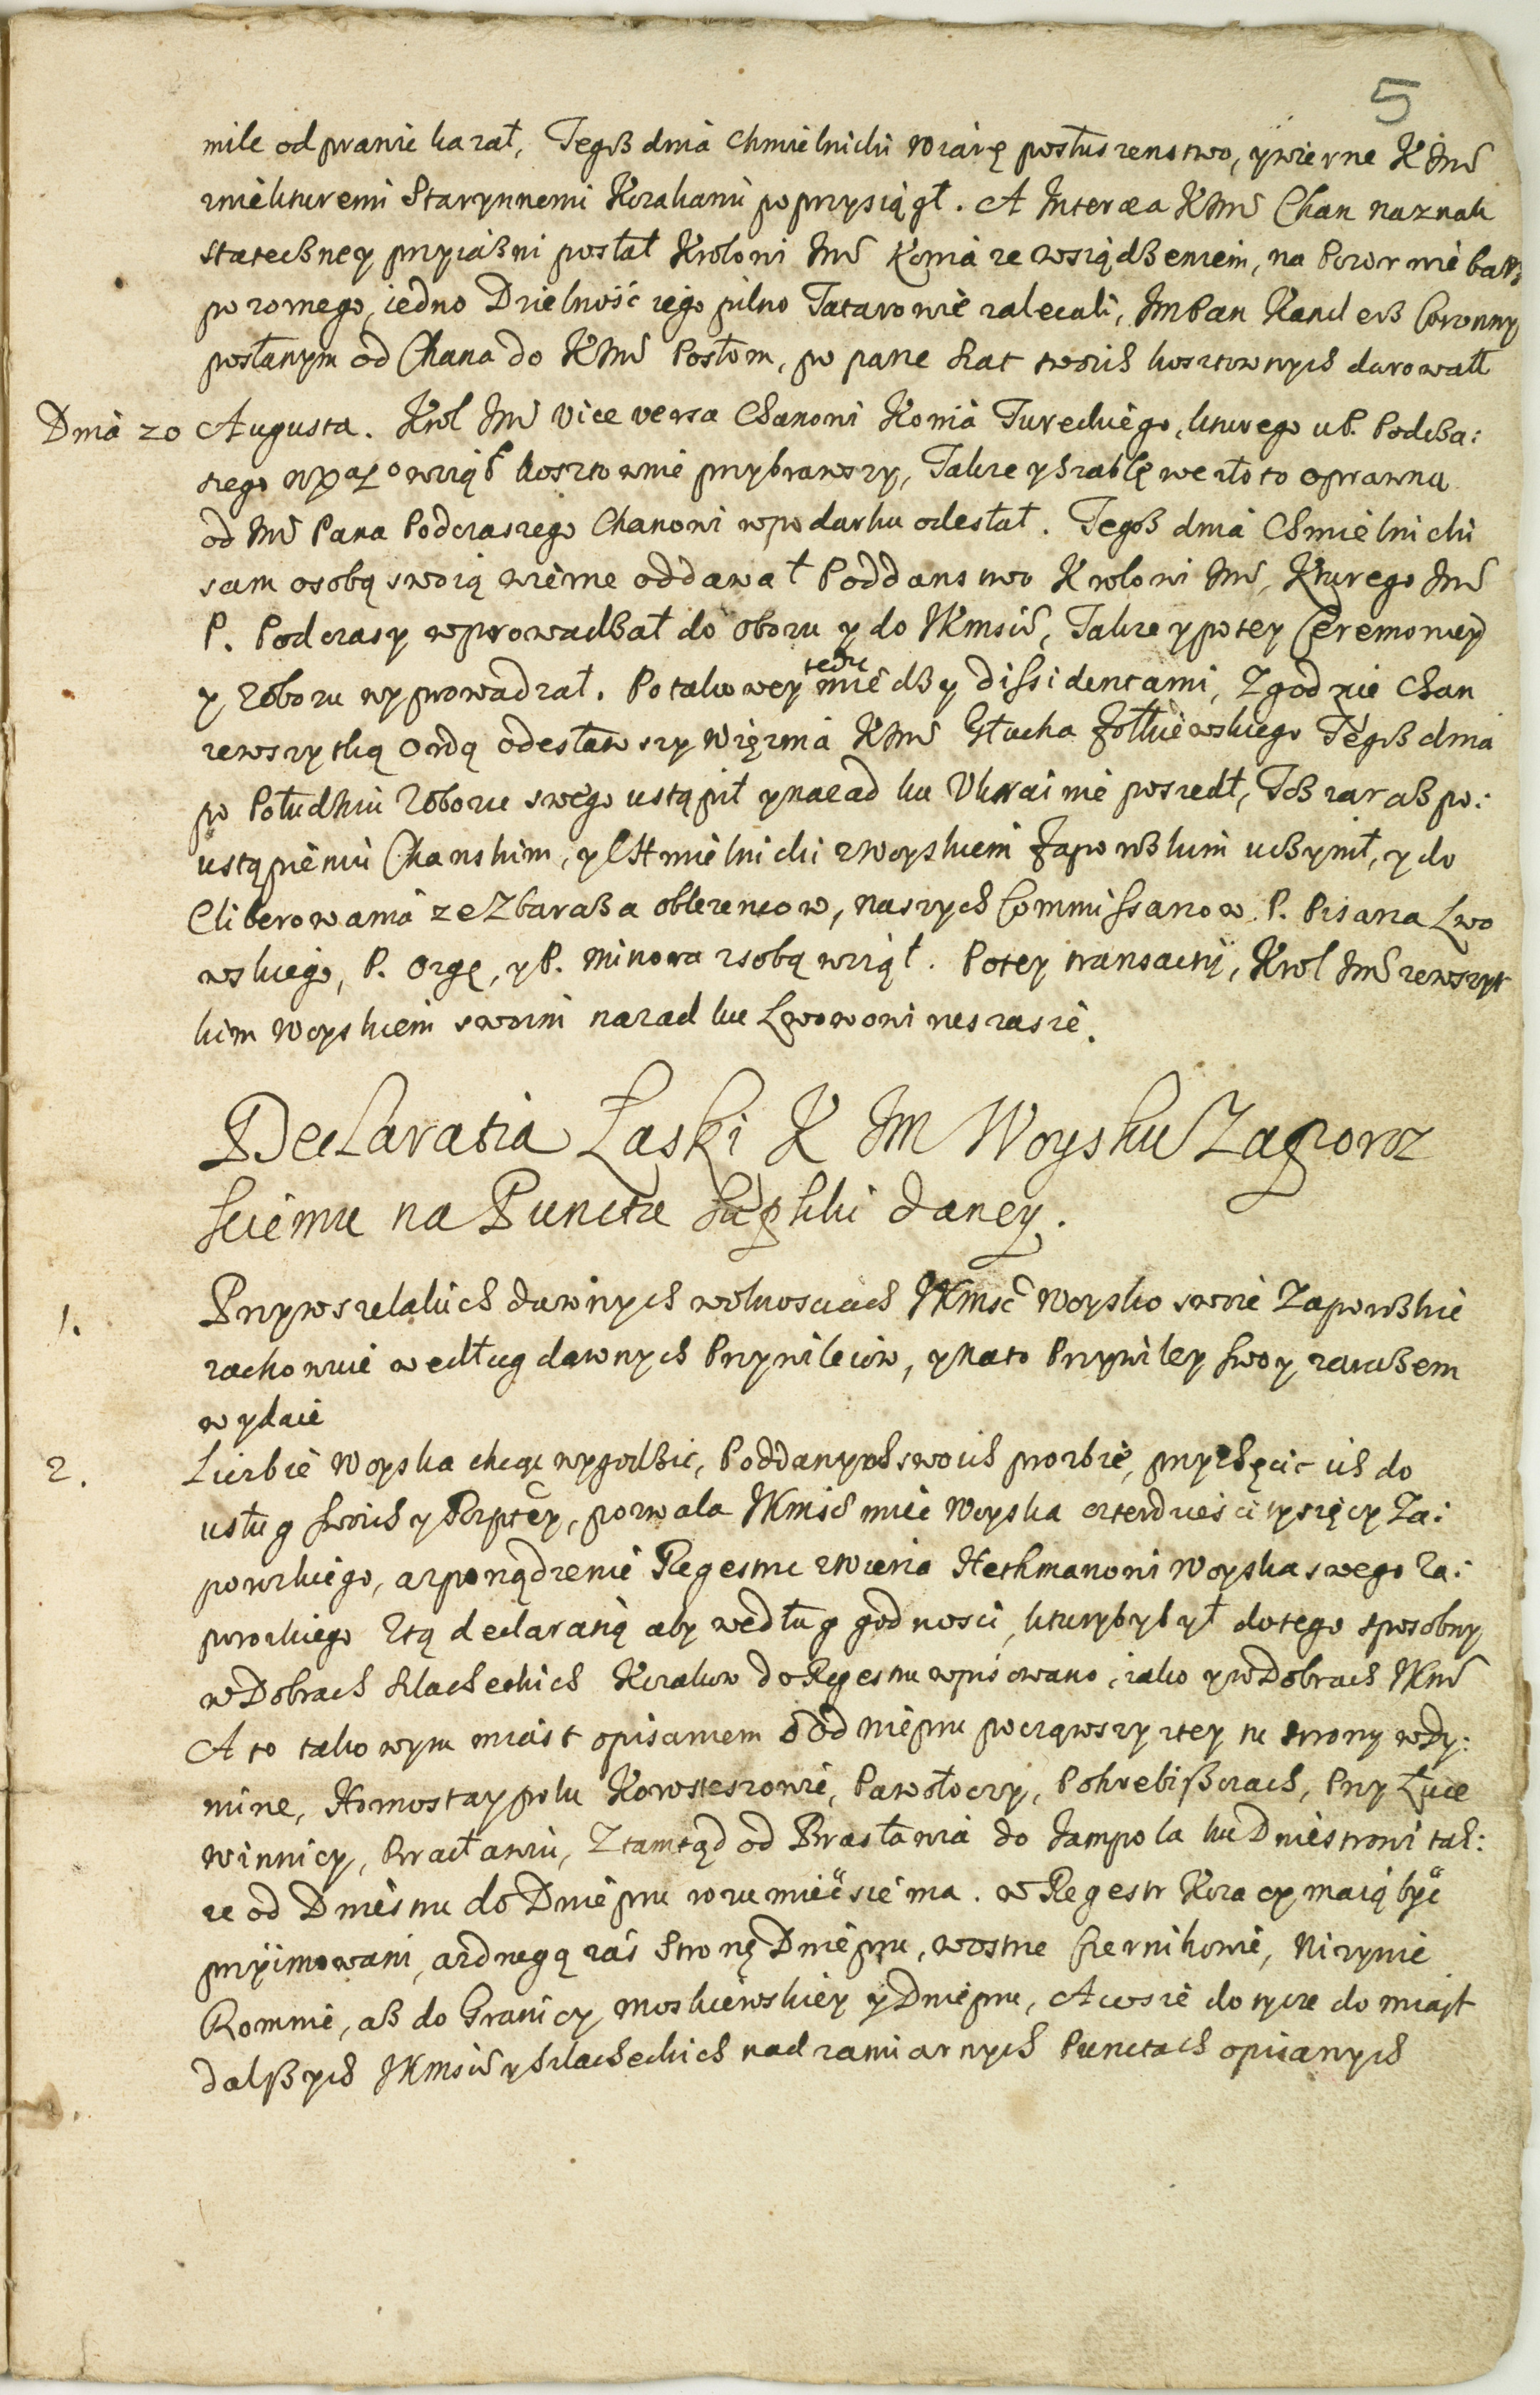 5
mile odprawic kazał, Tegoß dnia Chmielnicki wiarę posłuszenstwo, y wierne K Jmć
zniekturemi Starynnemi Kozakami poprzysiągł. A Interea KJmć Chan naznak
statecßney przyiaßni posłał Krolowi Jmć Konia ze wsiądßeniem, na Pozor nie barß
pozornego, iedno Dzielność iego pilno Tatarowie zalecali, JmPan Kanclerß Coronny
posłanym od Chana do KJmć Posłom, po parze szat swoich kosztownych darowałł
Dnia 20 Augusta. Krol Jmć vice versa Chanowi Konia Tureckiego, kturego u P. Podcßa:
szego wziąß kosztownie przybrawszy, Takze y szablę we złoto oprawną
od Jmć Pana Podczaszego Chanowi wpodarku odesłał. Tegoß dnia Chmielnicki
sam osobą swoią wierne oddawał Poddanstwo Krolowi Jmć, Kturego Jmć
P. Podczaszy wprowadßał do obozu y do JKmści, Takze y potey Ceremoniey
y zobozu wyprowadzał. Potakowey tedy miedßy dissidentami, Zgodzie Chan
zewszytką ordą odesławszy Więznia KJmć Głucha Zołkiewskiego Tegoß dnia
po Południu zobozu swego ustąpił y nazad ku Ukrainie poszedł, Toß zaraß po:
ustąpieniu Chanskim, y CHmielnicki zwoyskiem Zaporoßkim ucßynił, y do
Eliberowania ze Zbaraßa oblezencow, naszych Commissarzow P. Pisarza Lwo
wskiego, P. Ozgę, y P. Minora zsobą wziął. Potey transactij, Krol Jmć zewszyt
kim woyskiem swoim nazad ku Lwowowi ruszasie.
Declaratia Łaski K JM Woysku Zaporoz
skiemu na Puncta Supliki daney.
1. Przywszelakich dawnych wolnosciach JKmsć woysko swoie Zaporoßkie
zachowuie według dawnych Przywileiow, y nato Przywiley swoy zarasßem
wydaie
2. Liczbie woyska chcąc wygodßic, Poddanych swoich prozbie, przychęcic ich do
usług swoich y Rzptey, pozwala JKmsć miec Woyska czterdziesci tysięcy Za:
porozkiego, azporządzenie Regestru zwierza Hethmanowi Woyska swego Za:
porozkiego Ztą declaratią aby według godnosci, kturyby był dotego sposobny
w Dobrach szlacheckich Kozakow do Regestru wpisowano, iako y w Dobrach JKmć
A to takowym miast opisaniem od Dniepru począwszy ztey tu strony wDy:
mirze, Hornostaypolu Korosteszowie, Pawołoczy, Pohrebißczach, Przyłuce
Winnicy, Bracławiu, Ztamtąd od Brasławia do Jampola ku Dniestrowi tak:
ze od Dniestru do Dniepru rozumiećsie ma. w Regestr Kozacy maią być
prziimowani, azdrugą zaś Stronę Dniepru, wostrze Czernihowie, Nizynie
Romnie, aß do Granicy Moskiewskiey y Dniepru, A cosie dotycze do miast
dalßych JKmści y szlacheckich nad zamiar nych Punctach opisanych